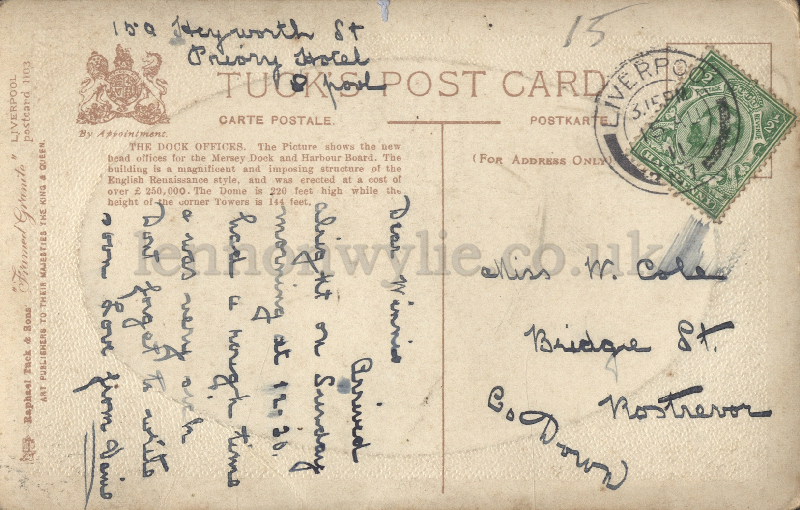 15
150 Heyworth St
Priory Hotel
L'pool
TUCK'S POST CARD
CARTE POSTALE.
POSTKARTE
(For Address Only)
By Appointment.
THE DOCK OFFICES. The Picture shows the new
head offices for the Mersey Dock and Harbour Board. The
building is a magnificent and imposing structure of the
English Renaissance style, and was erected at a cost of
over £ 250,000. The Dome is 220 feet high while the
height of the corner Towers is 144 feet.
LIVERPOOL
postcard 1103
"Framed Gravute"
Raphael Tuck & Sons
ART PUBLISHERS TO THEIR MAJESTIES THE KING & QUEEN.
Dear Winnie
Arrived
alright on Sunday
morning at 12.30.
had a rough time
& was very sick
Dont forget to write
soon Love from
Miss W. Cole
Bridge St.
Rostrevor
Co Down
LIVERPO
3.15 PM
½
½
HALFPENNY
lennonwylie.co.uk